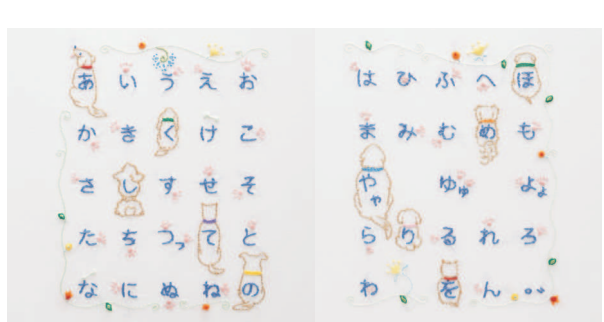 あいうえお
かきくけこ
さしすせそ
たちつってと
なにぬねの
はひふへほ
まみむめも
やゃゆゅよょ
らりるれろ
わをん゛゜